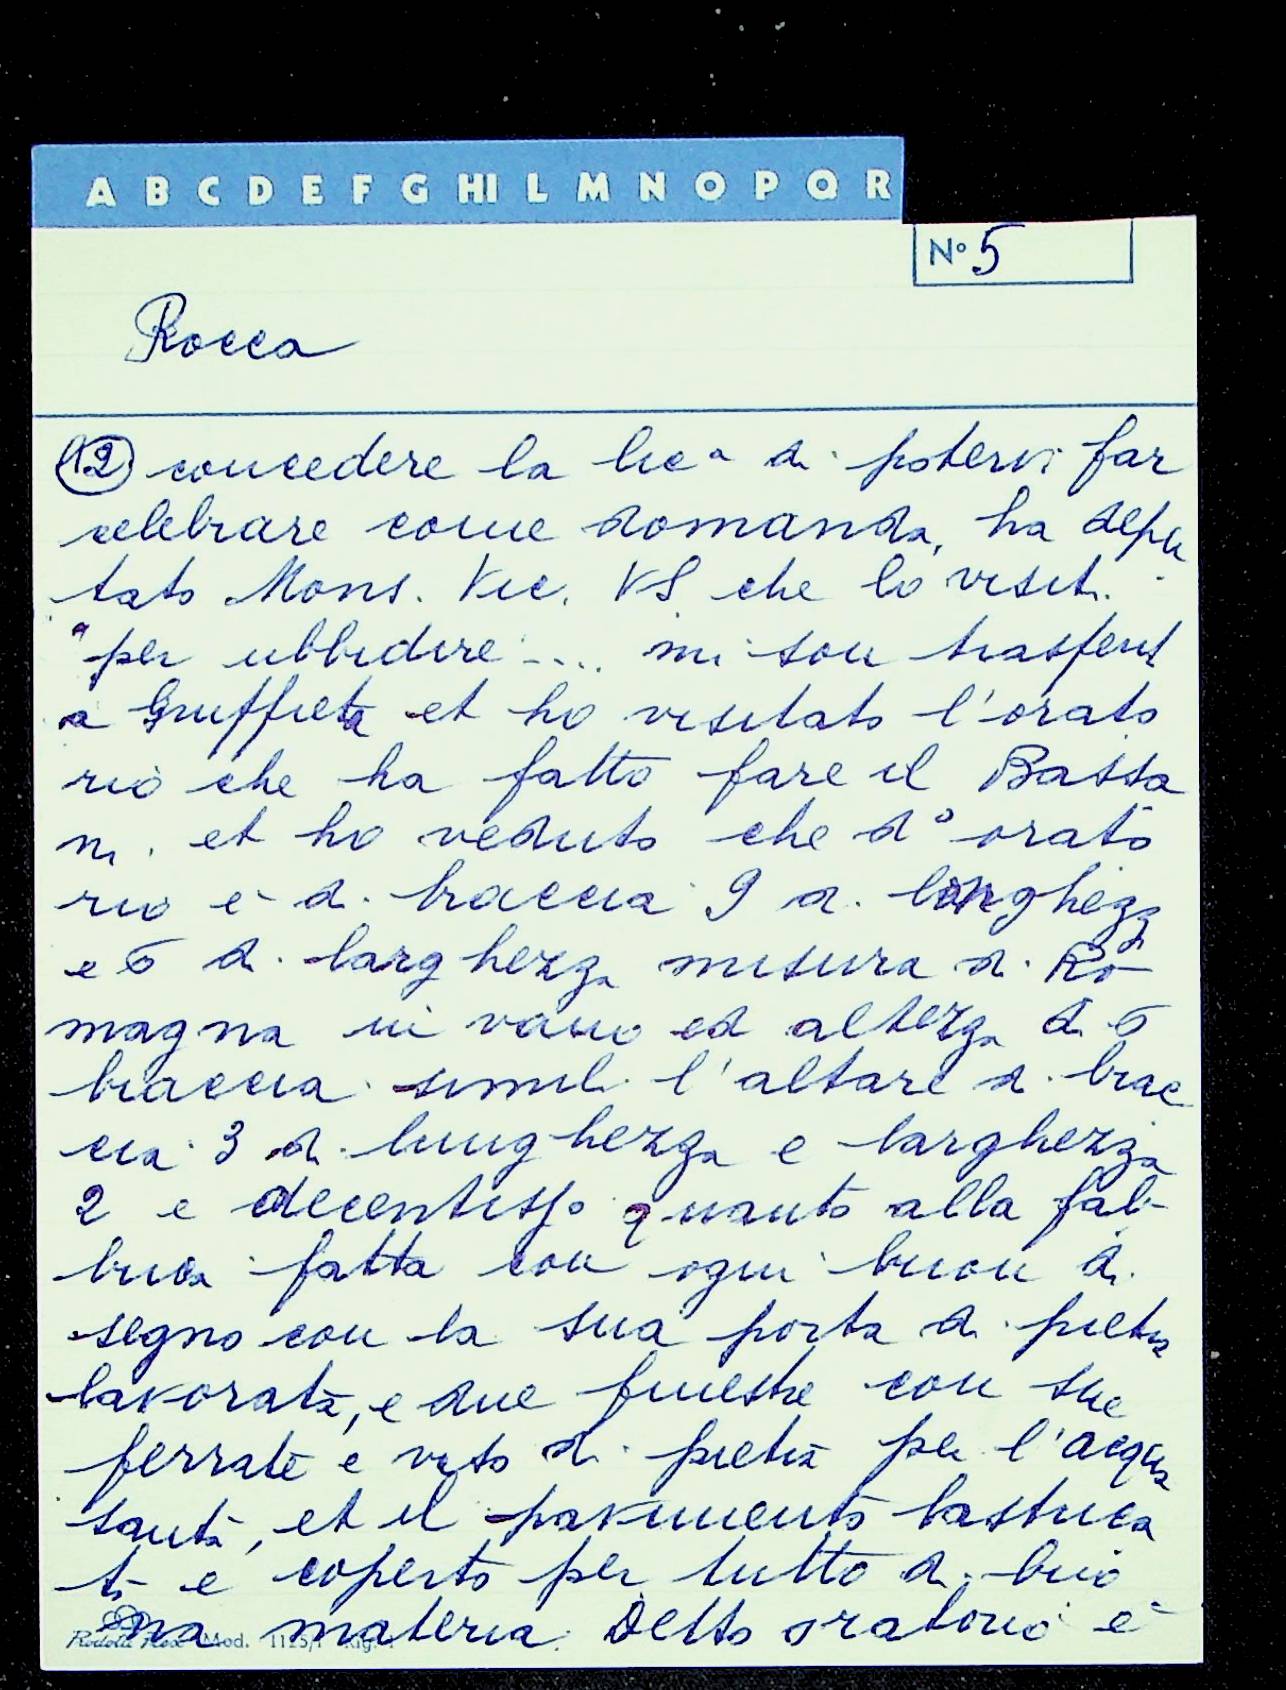 A B C D E F G HI L M N O P Q R
Nº 5
Rocca
12 concedere la licª di potervi far
celebrare come domanda, ha depu
tato Mons. Vic. VS che lo visiti.
"per ubbidire .... mi son trasferit
a Gruffieta et ho visitato l'orato
rio che ha fatto fare il Bassa
ni. et ho veduto che dº orato
rio è di braccia 9 di longhezz
e 6 di larghezza misura di Ro
magna in vano ed altezza di 6
braccia simili l'altare di brac
cia 3 di lunghezza e larghezza
2 e decentisso quanto alla fab-
brica fatta con ogni buon di
segno con la sua porta di pietra
lavorata, e due finestre con sue
ferrate e vaso di pietra per l'acqua
santa, et il pavimento lastrica
to e coperto per tutto di buo
na materia. Detto oratorio è
Mod. 1125/1 Rig.